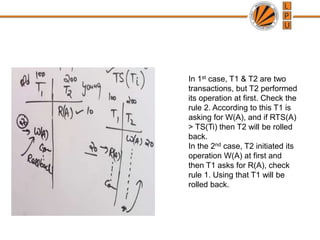 L
P
U
old 100 200 young
T1 T2
R(A) 10
W(A)
TS(Ti)
100 200
T1 T2
W(A) 20
R(A)
In 1st case, T1 & T2 are two
transactions, but T2 performed
its operation at first. Check the
rule 2. According to this T1 is
asking for W(A), and if RTS(A)
> TS(Ti) then T2 will be rolled
back.
In the 2nd case, T2 initiated its
operation W(A) at first and
then T1 asks for R(A), check
rule 1. Using that T1 will be
rolled back.